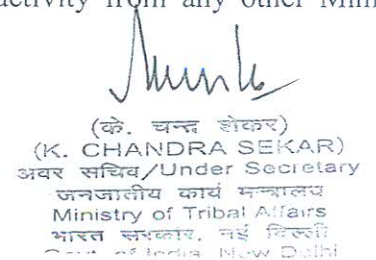 activity from any other Min
(के. चन्द्र शेकर)
(K. CHANDRA SEKAR)
अवर सचिव/Under Secretary
जनजातीय कार्य मन्त्रालय
Ministry of Tribal Affairs
भारत सरकार, नई दिल्ली
Govt. of India, New Delhi